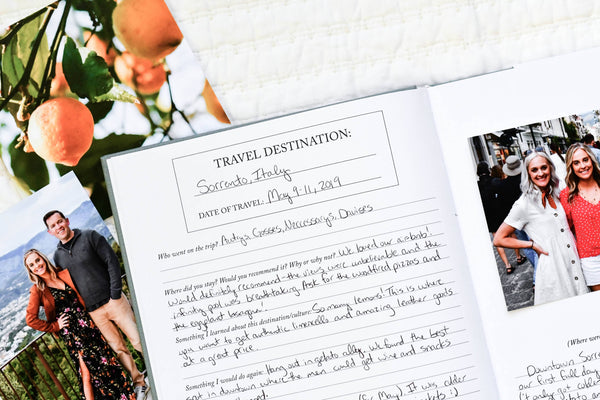 TRAVEL DESTINATION:
Sorrento, Italy
DATE OF TRAVEL: May 9-11, 2019
Who went on the trip? Autiya Gosses, Neccessarys, Davises
Where did you stay? Would you recommend it? Why or why not? We loved our airbnb!
Would definitely recommend - the views were unbelievable and the
infinity pool was breathtaking. Ask for the woodfired pizzas and
the eggplant lasagna!
Something I learned about this destination/culture: So many lemons! This is where
you want to get authentic limoncello and amazing leather goods
at a great price.
Something I would do again: Hang out in gelato ally, we found the best
spot in downtown where the men could get wine and snacks
(for May) It was colder
(Where
Downtown Sorre
our first full day